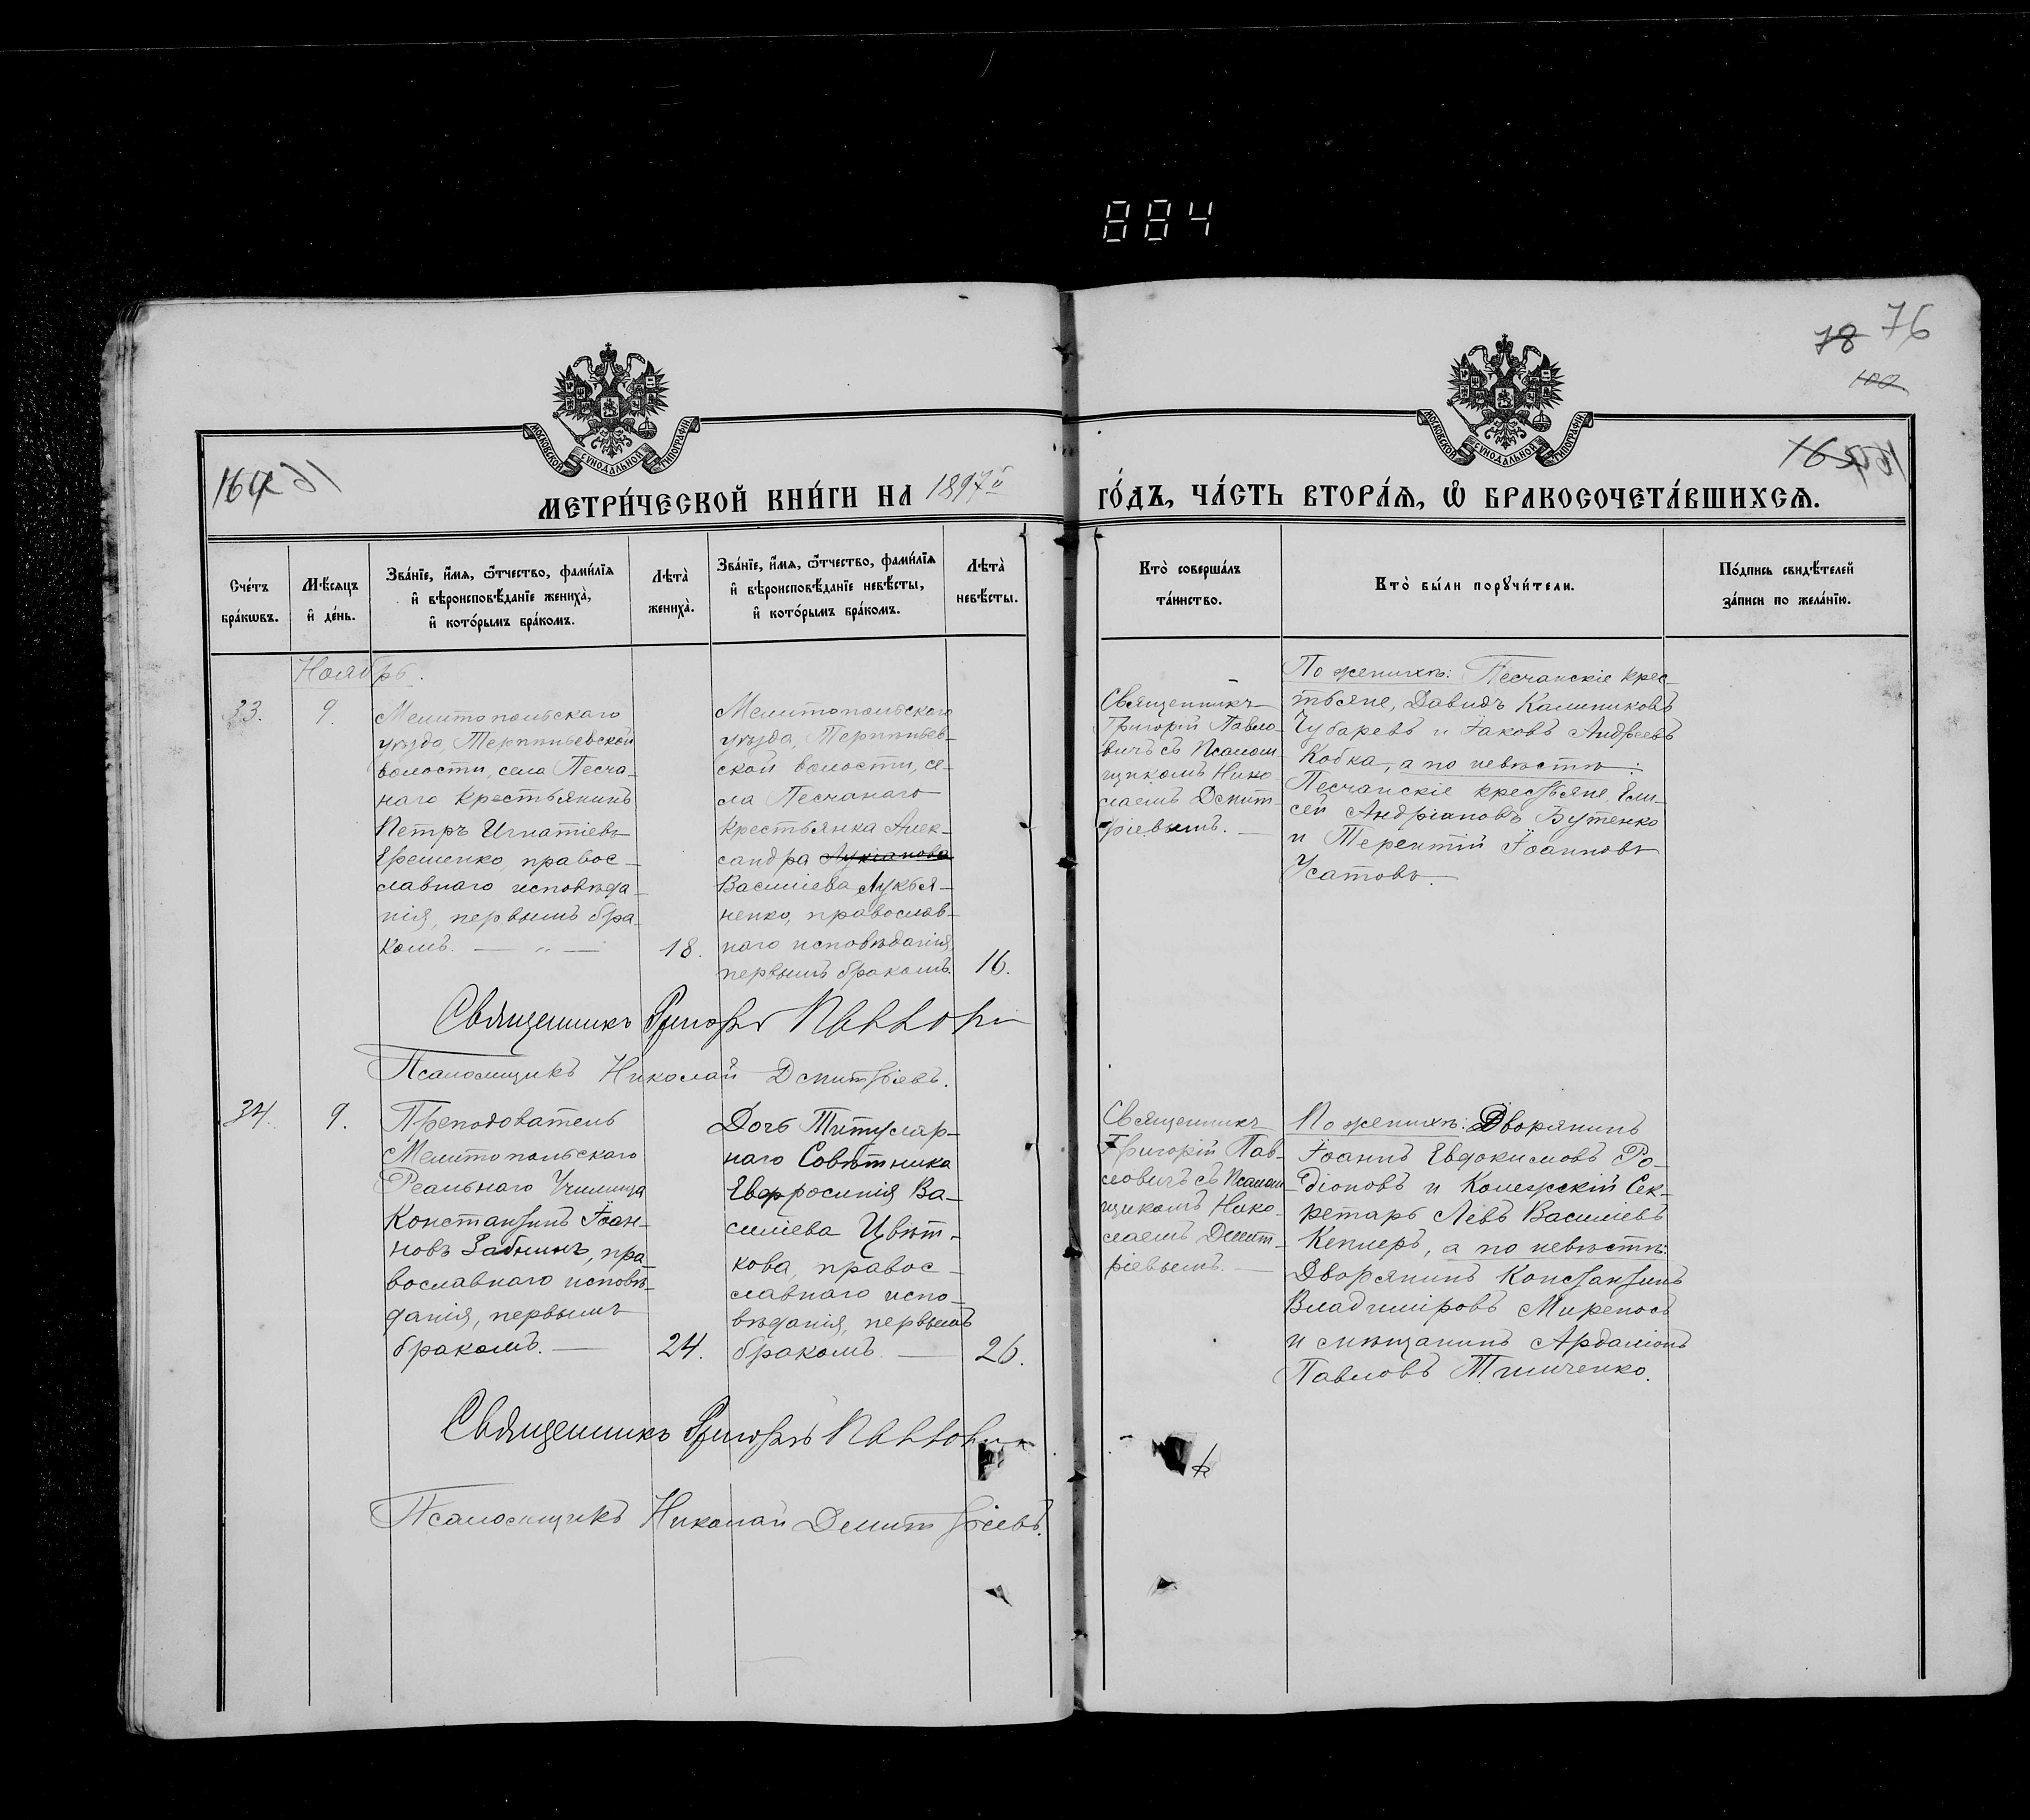 884
78 76
100
МОСКОВСКОЙ СУНОДАЛЬНОЙ ТИПОГРАФІИ
МОСКОВСКОЙ СУНОДАЛЬНОЙ ТИПОГРАФІИ
МЕТРИ́ЧЕСКОЙ КНИ́ГИ НА 1897й ГО́ДЪ, ЧА́СТЬ ВТОРА́Ѧ, Ѽ БРАКОСОЧЕТА́ВШИХСѦ.
Сче́тъ бра́кѡвъ.
Мѣ́сѧцъ и҆ де́нь.
Зва́нїе, и҆́мѧ, ѻ҆́тчество, фами́лїѧ и҆ вѣроисповѣ́данїе жениха̀, и҆ кото́рымъ бра́комъ.
Лѣта̀ жениха̀.
Зва́нїе, и҆́мѧ, ѻ҆́тчество, фами́лїѧ и҆ вѣроисповѣ́данїе невѣ́сты, и҆ кото́рымъ бра́комъ.
Лѣта̀ невѣ́сты.
Кто̀ соверша́лъ та́инство.
Кто̀ бы́ли порꙋчи́тели.
По́дпись свидѣ́телей за́писи по жела́нїю.
Ноябрь.
33.
9.
Мелитопольскаго
уѣзда, Терпиньевской
волости, села Песча-
наго крестьянинъ
Петръ Игнатіевъ
Ерешенко, правос-
лавнаго исповѣда-
нія, первымъ бра-
комъ. — „ —
18.
Мелитопольскаго
уѣзда, Терпиньев-
ской волости, се-
ла Песчанаго
крестьянка Алек-
сандра Лукіанова
Василіева Лукья-
ненко, православ-
наго исповѣданія,
первымъ бракомъ.
16.
Священникъ
Григорій Павло-
вичъ съ Псалом-
щикомъ Нико-
лаемъ Дмит-
ріевымъ. —
По женихѣ: Песчанскіе крес-
тьяне, Давидъ Калиниковъ
Чубаревъ и Іаковъ Андреевъ
Кобка, а по невѣстѣ:
Песчанскіе крестьяне, Ели-
сей Андріановъ Бутенко
и Терентій Іоанновъ
Усатовъ.
Священникъ Григорій Павловичъ
Псаломщикъ Николай Дмитріевъ.
34.
9.
Преподователь
Мелитопольскаго
Реальнаго Училища
Константинъ Іоан-
новъ Забнинъ, пра-
вославнаго исповѣ-
данія, первымъ
бракомъ. —
24.
Дочь Титуляр-
наго Совѣтника
Евфросинія Ва-
силіева Цвѣт-
кова, правос-
лавнаго испо-
вѣданія, первымъ
бракомъ. —
26.
Священникъ
Григорій Пав-
ловичъ съ Псалом-
щикомъ Нико-
лаемъ Дмит-
ріевымъ. —
По женихѣ: Дворянинъ
Іоаннъ Евдокимовъ Ро-
діоновъ и Колежскій Сек-
ретарь Левъ Василіевъ
Кеплеръ, а по невѣстѣ:
Дворянинъ Константинъ
Владиміровъ Миреносъ
и мѣщанинъ Ардаліонъ
Павловъ Тимченко.
Священникъ Григорій Павловичъ
Псаломщикъ Николай Дмитріевъ.